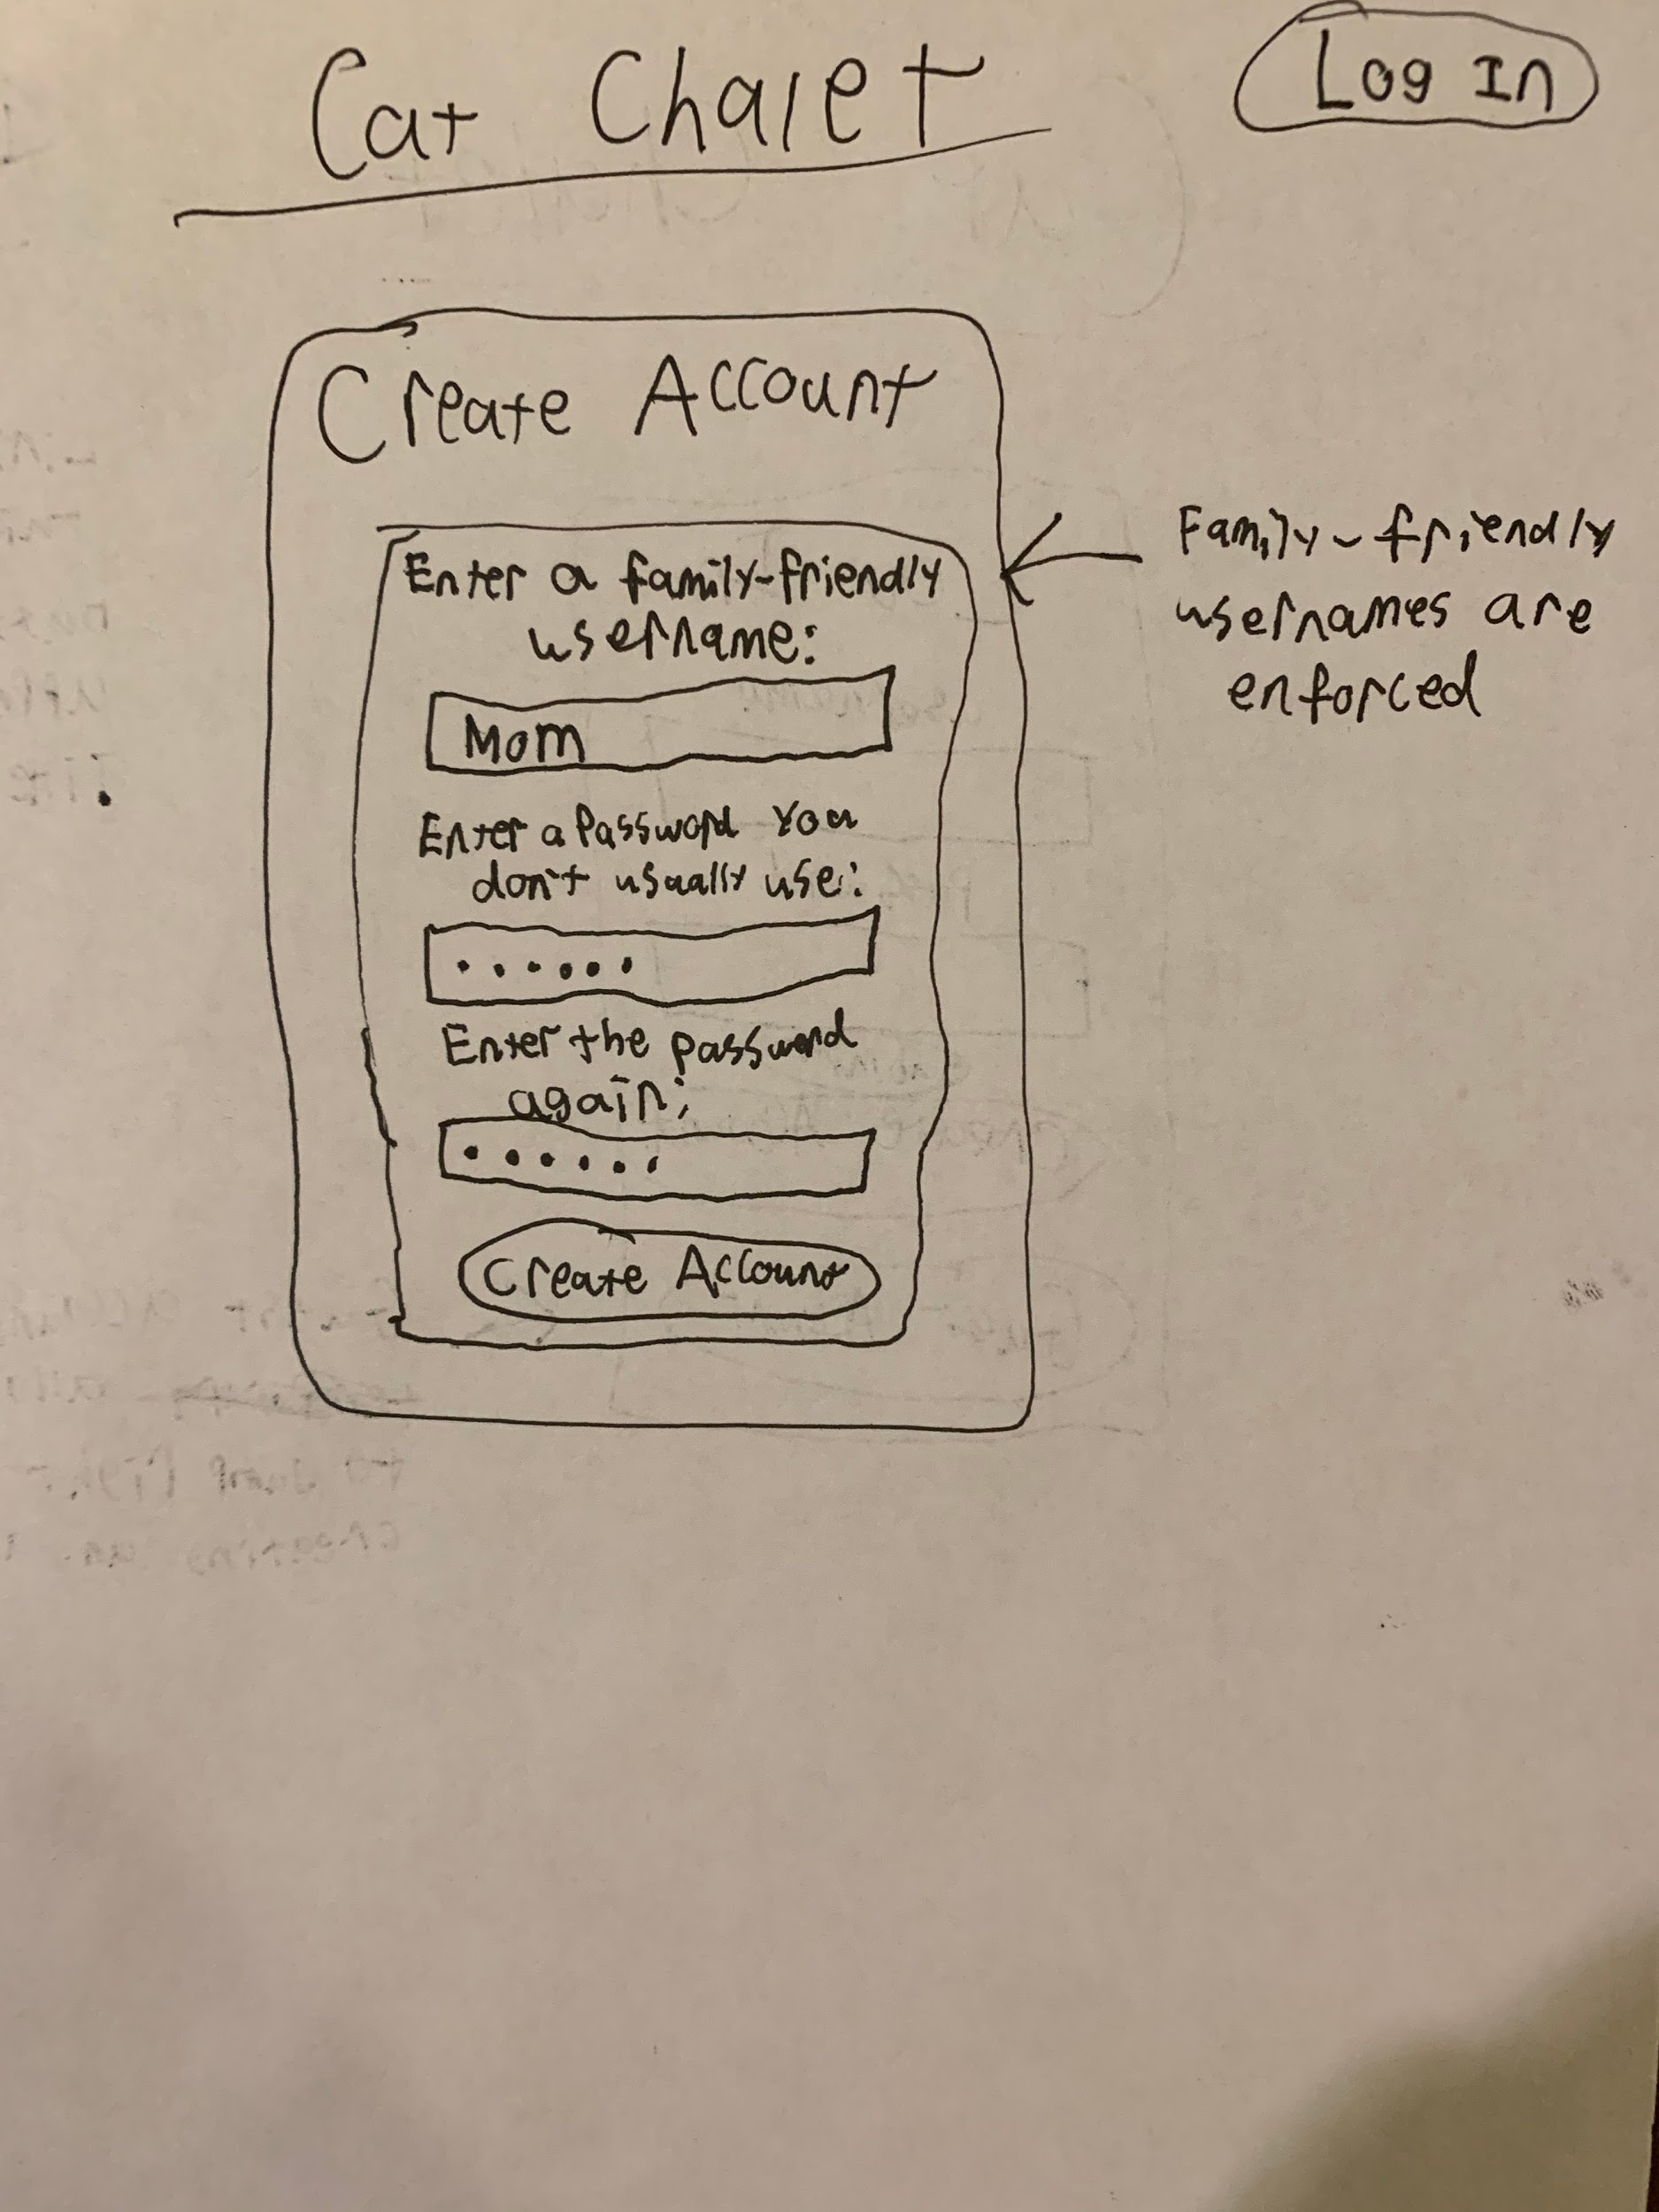 Cat Chalet
Log In
Create Account
Enter a family-friendly
username:
Mom
Enter a Password You
don't usually use:
......
Enter the password
again:
......
Create Account
Family-friendly
usernames are
enforced